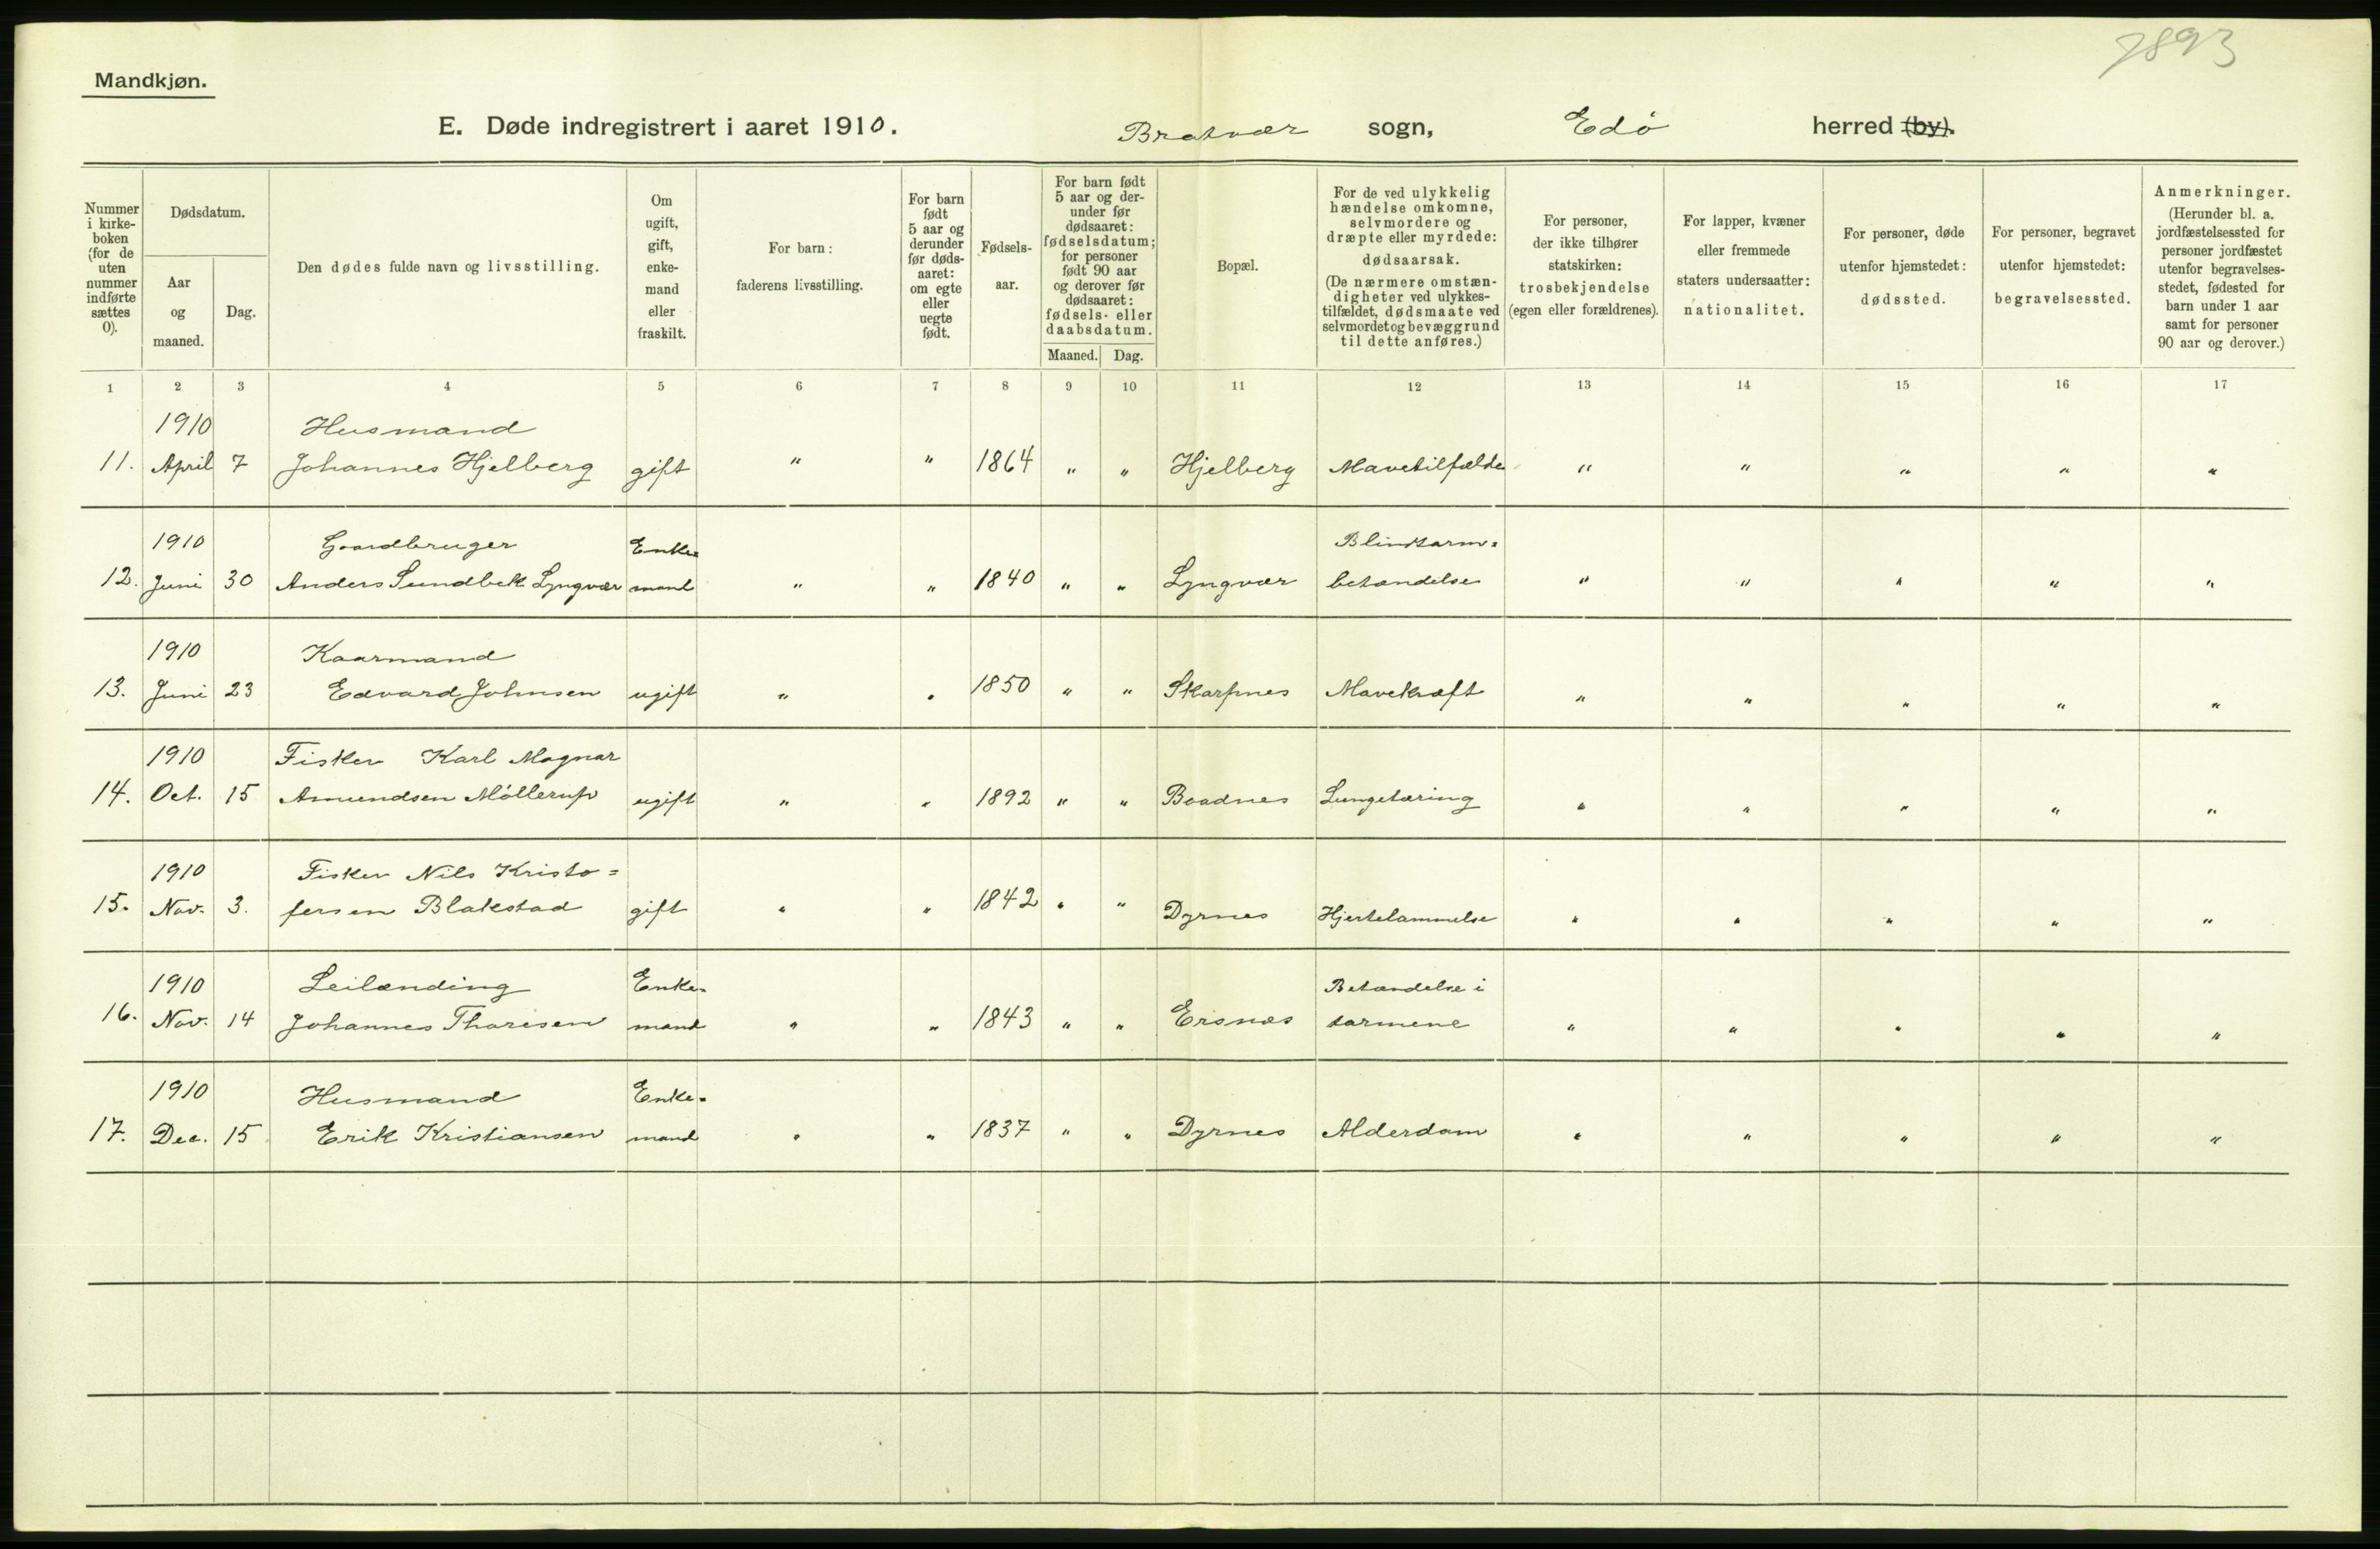 7893
Mandkjøn.
E. Døde indregistrert i aaret 1910. Bratvær sogn, Edö herred (by).
Nummer i kirke-boken (for de uten nummer indførte sættes 0).
Dødsdatum.
Aar og maaned.
Dag.
Den dødes fulde navn og livsstilling.
Om ugift, gift, enke-mand eller fraskilt.
For barn: faderens livsstilling.
For barn født 5 aar og derunder før døds-aaret: om egte eller uegte født.
Fødsels-aar.
For barn født 5 aar og der-under før dødsaaret: fødselsdatum; for personer født 90 aar og derover før dødsaaret: fødsels- eller daabsdatum.
Maaned. Dag.
Bopæl.
For de ved ulykkelig hændelse omkomne, selvmordere og dræpte eller myrdede: dødsaarsak. (De nærmere omstæn-digheter ved ulykkes-tilfældet, dødsmaate ved selvmordet og bevæggrund til dette anføres.)
For personer, der ikke tilhører statskirken: trosbekjendelse (egen eller forældrenes).
For lapper, kvæner eller fremmede staters undersaatter: nationalitet.
For personer, døde utenfor hjemstedet: dødssted.
For personer, begravet utenfor hjemstedet: begravelsessted.
Anmerkninger. (Herunder bl. a. jordfæstelsessted for personer jordfæstet utenfor begravelses-stedet, fødested for barn under 1 aar samt for personer 90 aar og derover.)
1 2 3 4 5 6 7 8 9 10 11 12 13 14 15 16 17
1910 Husmand
11. April 7 Johannes Hjelberg gift " " 1864 " " Hjelberg Mavetilfælde " " " " "
1910 Gaardbruger Enke= Blindtarm=
12. Juni 30 Anders Sundbek Lyngvær mand " " 1840 " " Lyngvær betændelse " " " " "
1910 Kaarmand
13. Juni 23 Edvard Johnsen ugift " " 1850 " " Skarpnes Mavekræft " " " " "
1910 Fisker Karl Magnar
14. Oct. 15 Amundsen Möllerup ugift " " 1892 " " Baadnes Lungetæring " " " " "
1910 Fisker Nils Kristo=
15. Nov. 3. fersen Blakstad gift " " 1842 " " Dyrnes Hjertelammelse " " " " "
1910 Leilænding Enke= Betændelse i
16. Nov. 14 Johannes Thoresen mand " " 1843 " " Ersnæs tarmene " " " " "
1910 Husmand Enke=
17. Dec. 15 Erik Kristiansen mand " " 1837 " " Dyrnes Alderdom " " " " "